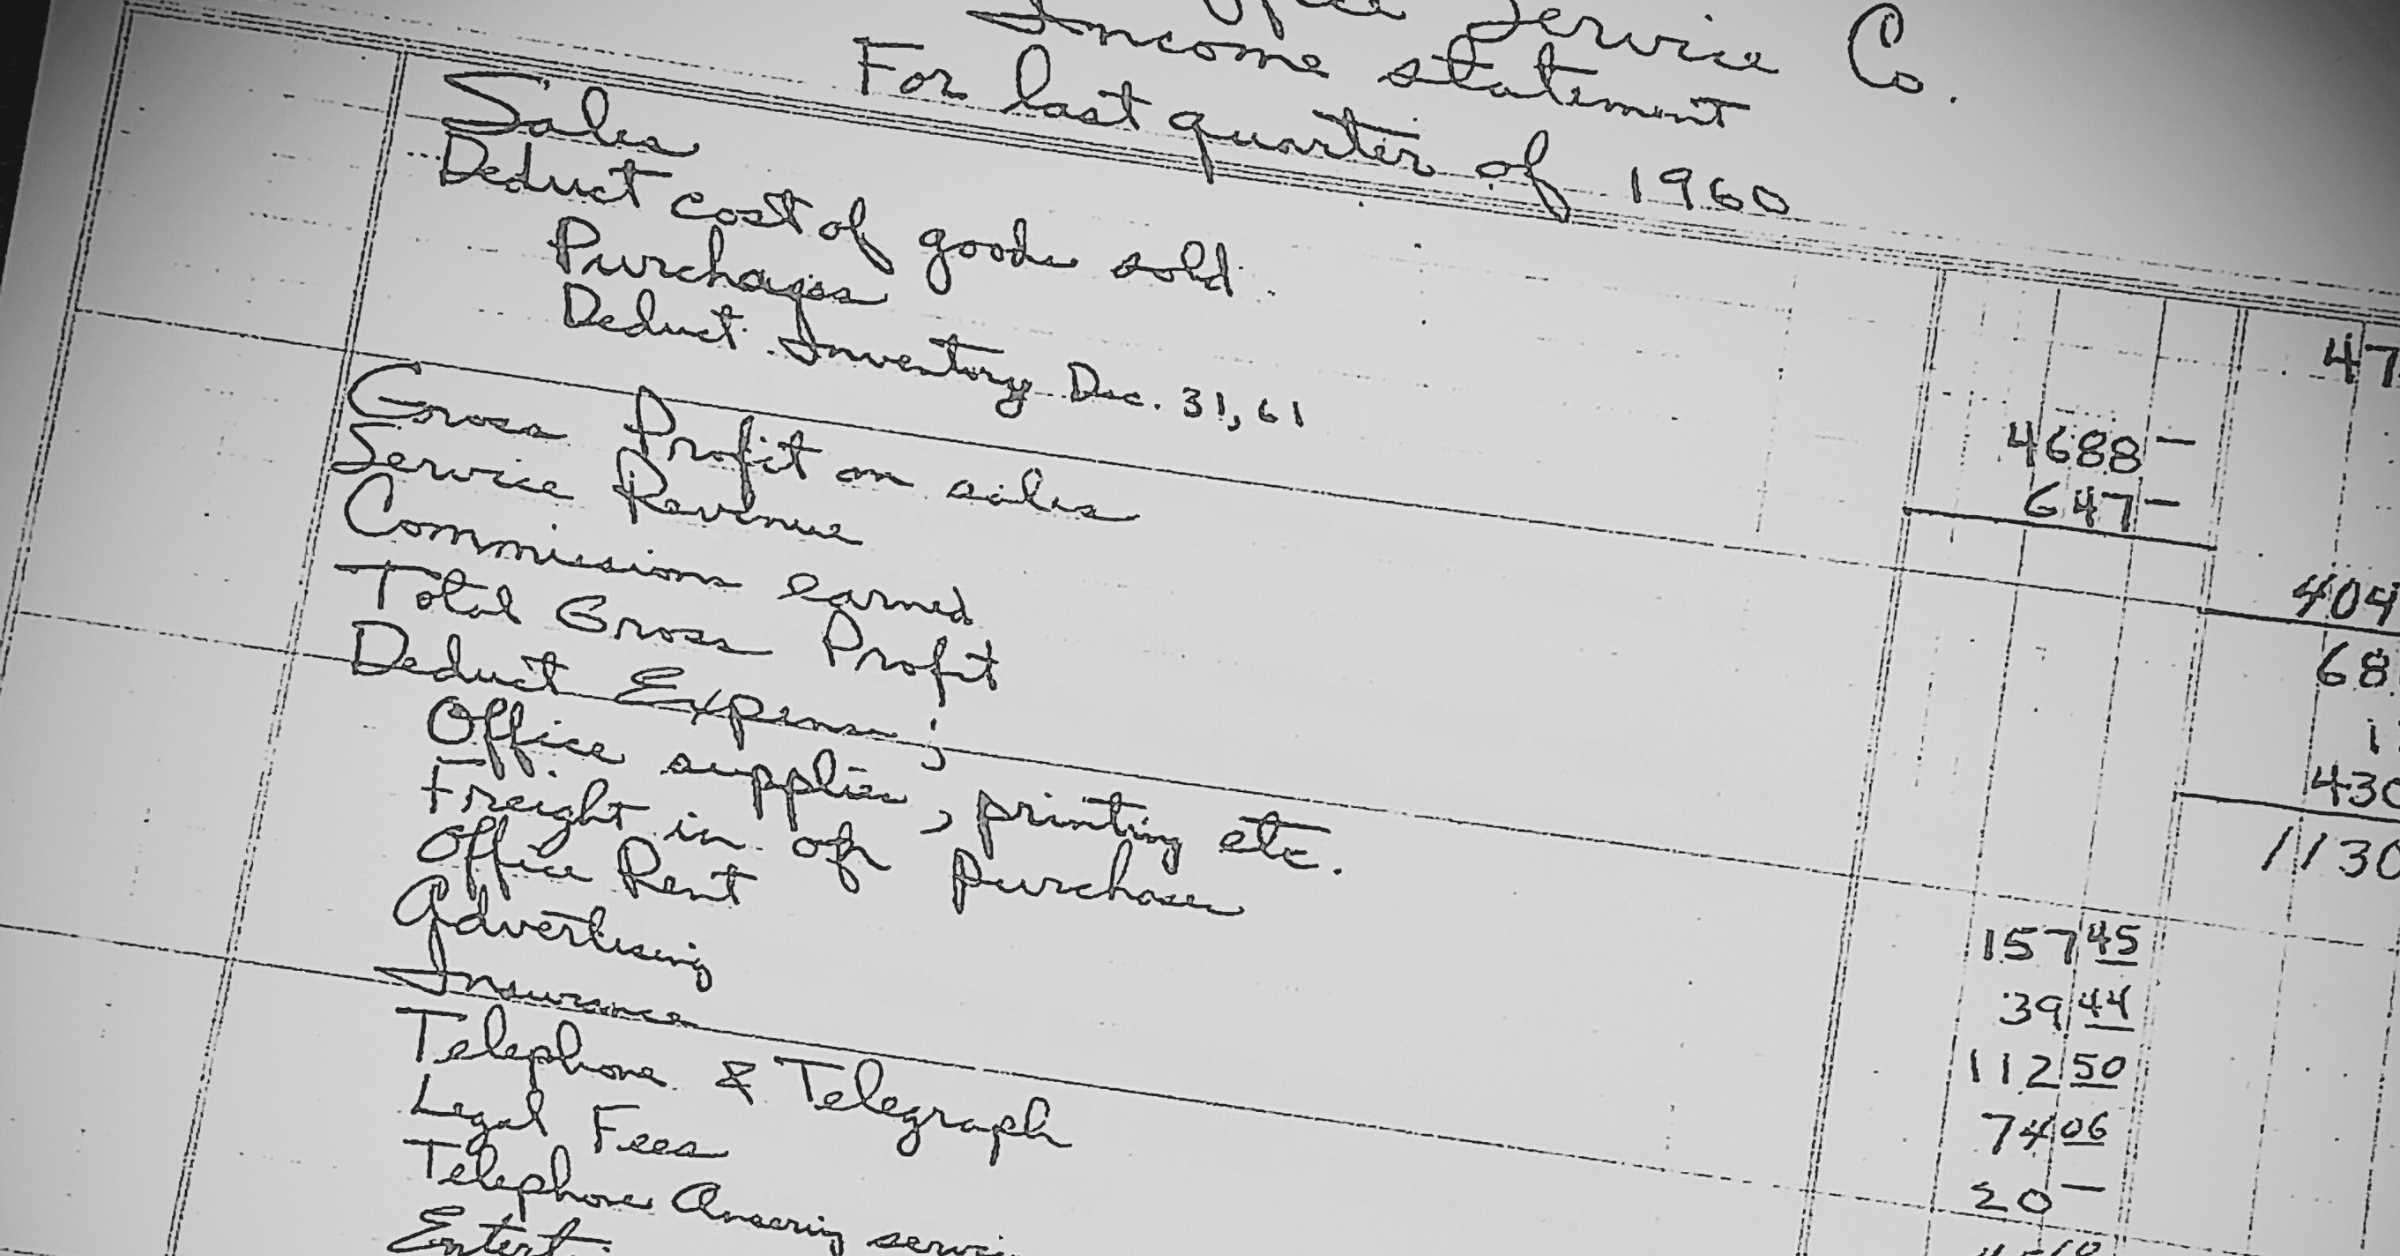 Service Co.
Income statement
For last quarter of 1960
Sales 47
Deduct cost of goods sold
Purchases 4688 —
Deduct Inventory Dec. 31, 61 647 — 404
Gross Profit on sales 68
Service Revenue 1
Commissions earned 430
Total Gross Profit 1130
Deduct Expense:
Office supplies, printing etc. 157 45
Freight in on purchases 39 44
Office Rent 112 50
Advertising 74 06
Insurance 20 —
Telephone & Telegraph
Legal Fees
Telephone Ansering servi
Entert